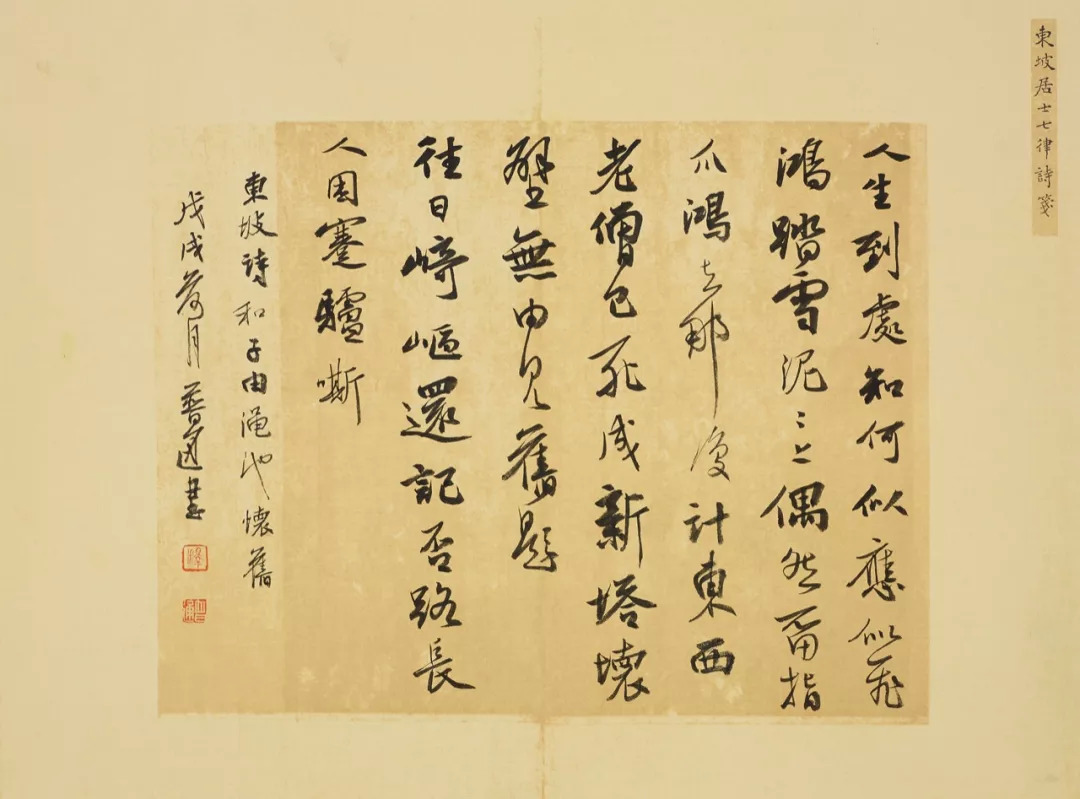 東坡居士七律詩箋
人生到處知何似應似飛
鴻踏雪泥〻上偶然留指
爪鴻去那復計東西
老僧已死成新塔壞
壁無由見舊題
往日崎嶇還記否路長
人困蹇驢嘶
東坡詩和子由澠池懷舊
戊戌荷月普書